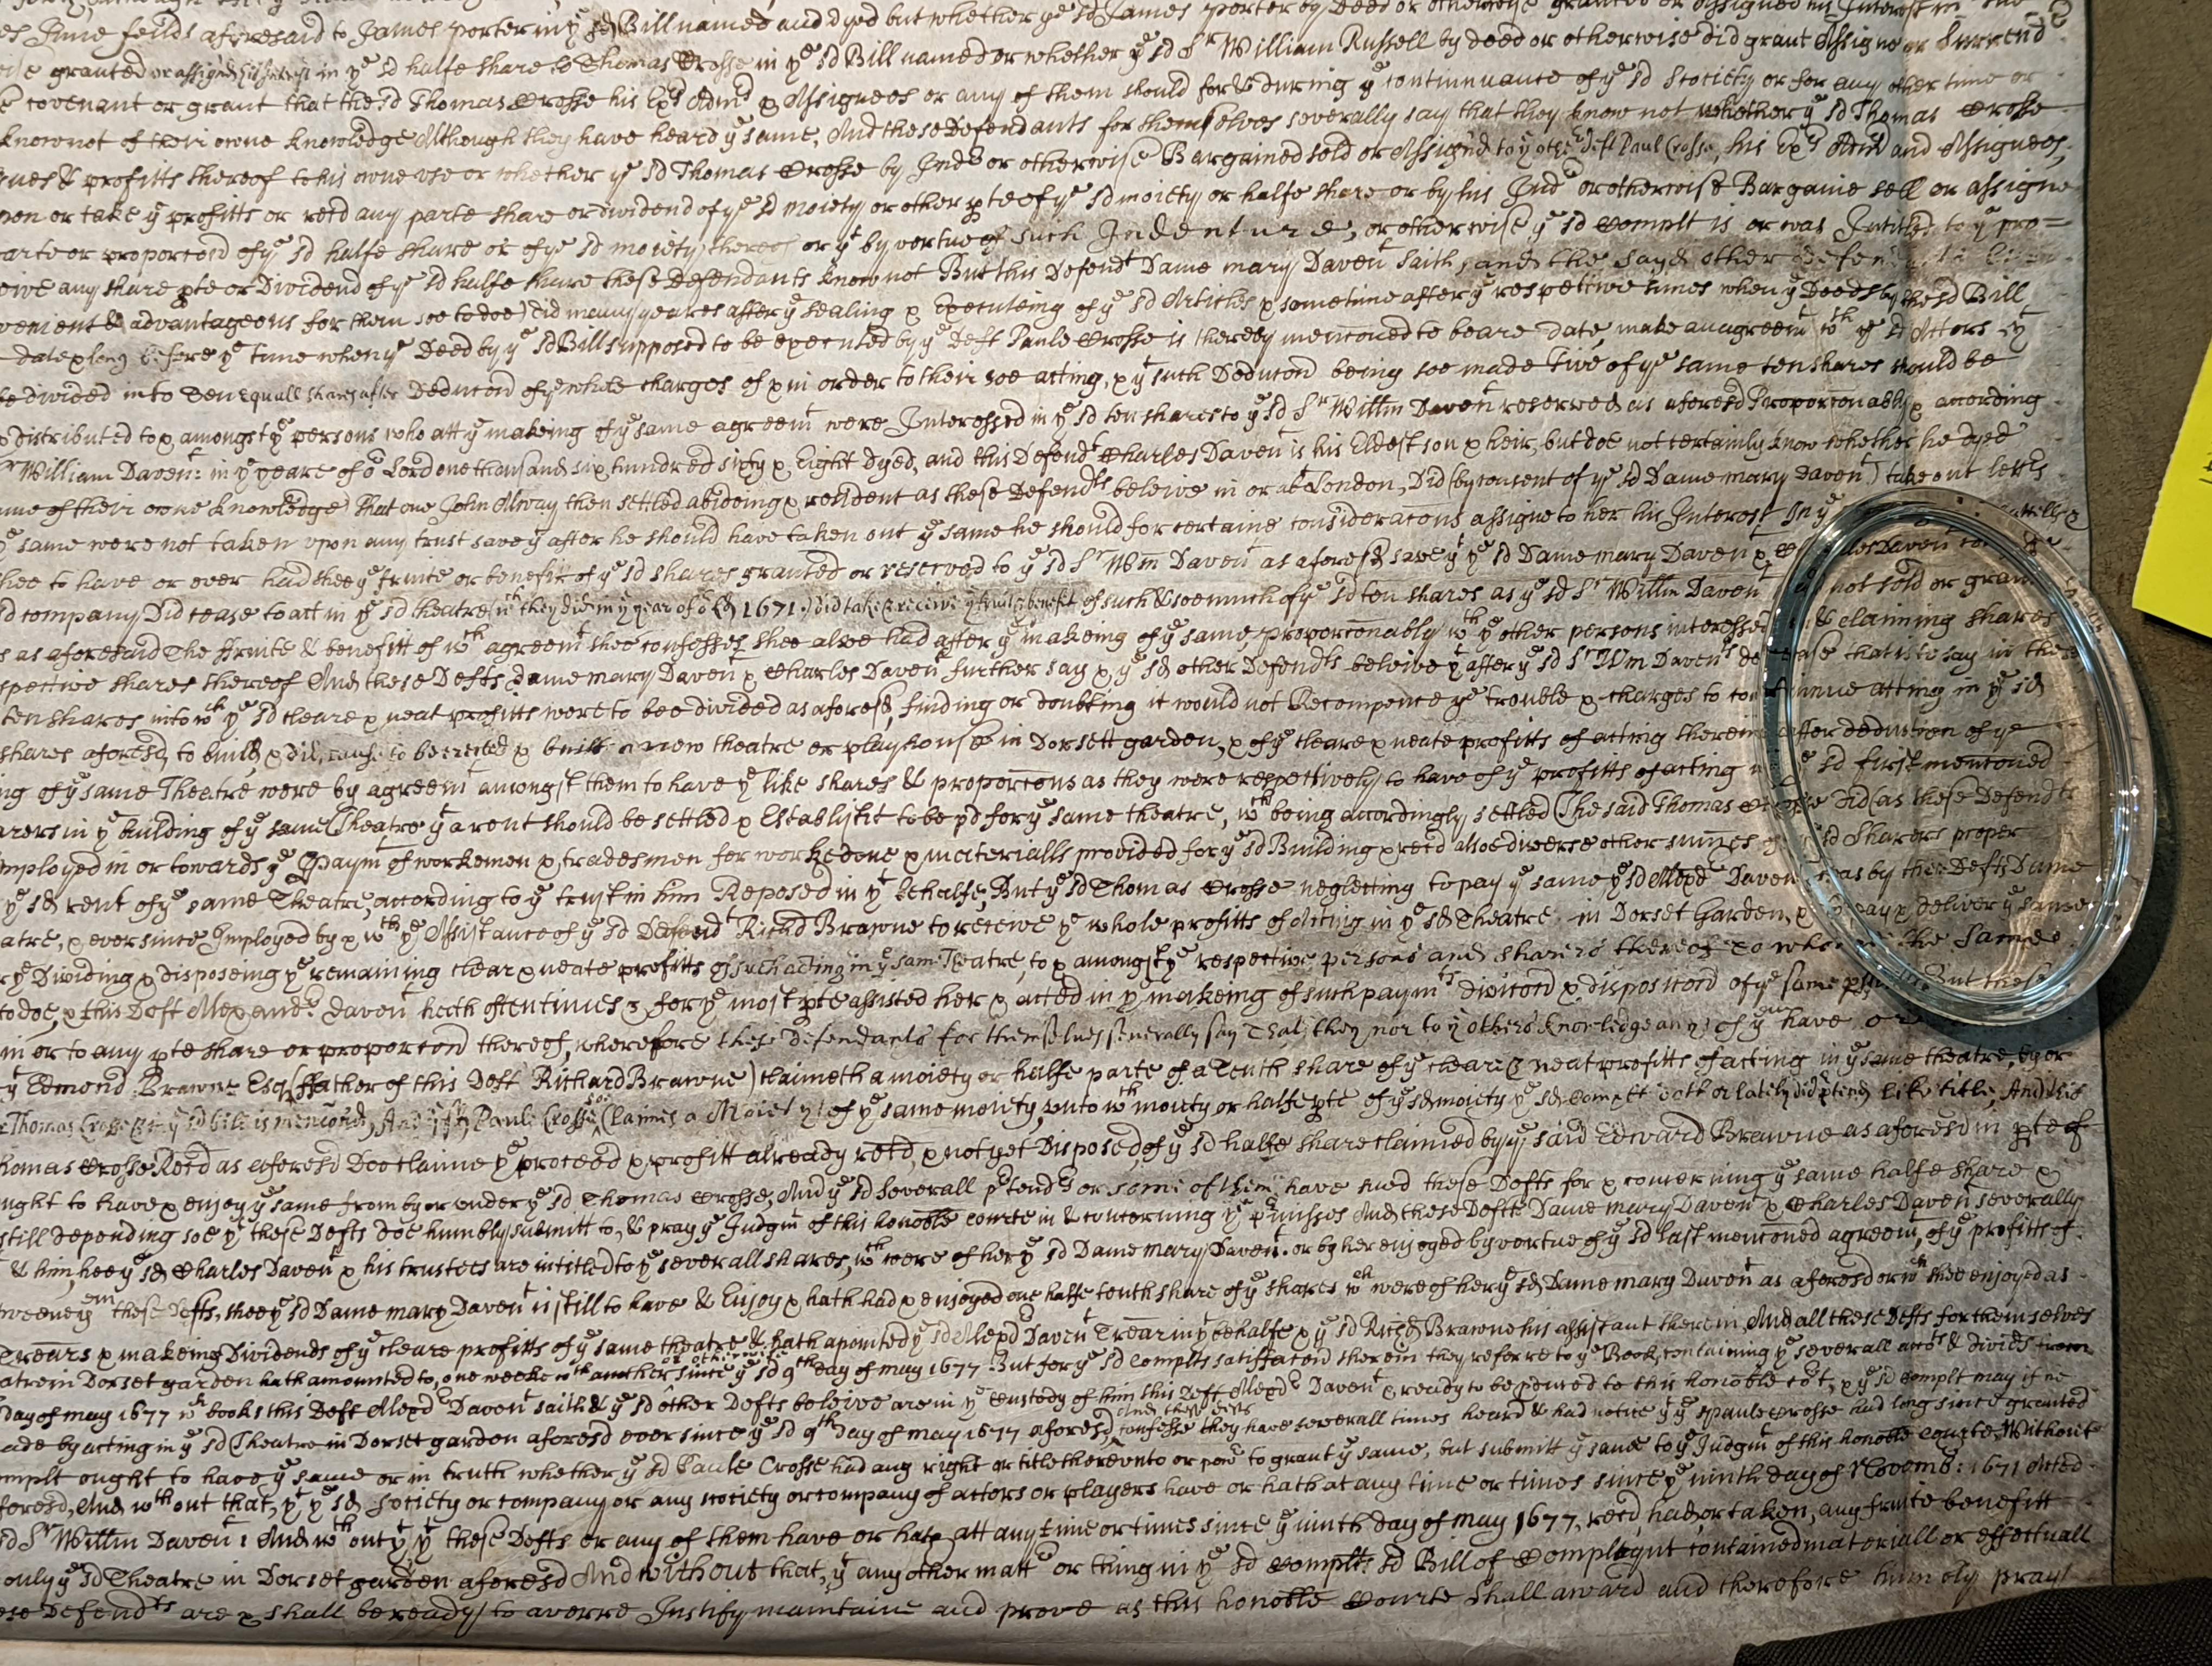 es June feilds aforesaid to James porter in yͤ sd Bill named and dyed but whether yͤ sd James porter by Deed or otherwise granted or assigned his Interest in
granted or assigned his Interest in yͤ sd halfe share to Thomas Crosse in yͤ sd Bill named or whether yͤ sd Sʳ William Russell by deed or otherwise did grant Assigne or Surrendʳ
covenant or grant that the sd Thomas Crosse his Exʳˢ Admʳˢ & Assignees or any of them should for & during yͤ continuance of yͤ sd Society or for any other time or
know not of their owne knowledge Although they have heard yͤ same, And these Defendants for themselves severally say that they know not whether yͤ sd Thomas Crosse
& profitts thereof to his owne use or whether yͤ sd Thomas Crosse by Indʳᵉ or otherwise Bargained sold or Assigned to yͤ otheʳ deft Paul Crosse, his Exʳˢ Admʳˢ and Assignees,
or take yͤ profitts or recd any parte share or dividend of yͤ sd moiety or other pte of yͤ sd moiety or halfe share or by his Indʳᵉ or otherwise Bargaine sell or assigne
arte or proporcōn of yͤ sd halfe share or of yͤ sd moiety thereof or yᵗ by vertue of such Indenture, or otherwise yͤ sd Complt is or was Intitled to yͤ pro=
eive any share pte or Dividend of yͤ sd halfe share these Defendants know not But this Defendᵗ Dame mary Davenᵗ saith, and the sayd other
venient & advantageous for them soe to doe) did many yeares after yͤ sealing & Executeing of yͤ sd Articles & sometime after yͤ respective times when yͤ Deeds by the sd Bill
date & long before yͤ time when yͤ Deed by yͤ sd Bill supposed to be executed by yͤ Deft Paule Crosse is thereby mencōned to beare date, make an agreemᵗ wᵗʰ yͤ sd Actors yᵗ
be divided into Ten equall shares after Deduccōn of yͤ whole charges of & in order to their soe acting, & yᵗ such Deduccōn being soe made Five of yͤ same ten shares should be
& distributed to & amongst yͤ persons who att yͤ makeing of yͤ same agreemᵗ were Interessed in yͤ sd ten shares to yͤ sd Sʳ Willm Davenᵗ reserved as aforesd Proporcōnably & according
William Davenᵗ: in yͤ yeare of oʳ Lord one thousand six hundred sixty & Eight dyed, and this Defendᵗ Charles Davenᵗ is his Eldest son & heir, but doe not certainly know whether he dyed
of their owne knowledge) that one John Alway then settled abideing & resident as these Defendᵗˢ beleive in or att London, Did (by consent of yͤ sd Dame mary Davenᵗ) take out lettʳˢ
yͤ same were not taken upon any trust save yᵗ after he should have taken out yͤ same he should for certaine consideracōns assigne to her his Interest In yͤ
shee to have or ever had shee yͤ fruite or benefit of yͤ sd shares granted or reserved to yͤ sd Sʳ Wm Davenᵗ as aforesd save yᵗ yͤ sd Dame mary Davenᵗ &
sd company Did cease to act in yͤ sd theatre (wᶜʰ they did in yͤ year of oʳ Ld 1671.) did take & receive yͤ fruit & benefit of such & soe much of yͤ sd ten shares as yͤ sd Sʳ Willm Davenᵗ had not sold or
s as aforesaid The ffruite & benefitt of wᶜʰ agreemᵗ shee confesses shee alsoe had after yͤ makeing of yͤ same, proporcōnably wᵗʰ yͤ other persons interessed in & claiming shares
spective shares thereof And these Defts Dame mary Davenᵗ & Charles Davenᵗ further say & yͤ sd other Defendᵗˢ beleive yᵗ after yͤ sd Sʳ Wm Davenᵗˢ decease that is to say in the
ten shares into wᶜʰ yͤ sd cleare & neat profitts were to bee divided as aforesd, finding or doubting it would not Recompence yͤ trouble & charges to continue acting in yͤ sd
shares aforesd, to build, & did, cause to be erected & built a new theatre or playhouse in Dorsett garden, & of yͤ cleare & neate profitts of acting therein after deduction of yͤ
ng of yͤ same Theatre were by agreemᵗ amongst them to have yͤ like shares & proporcōns as they were respectively to have of yͤ profitts of acting in yͤ sd first mencōned
arers in yͤ building of yͤ same Theatre yᵗ a rent should be settled & Establisht to be pd for yͤ same theatre, wᶜʰ being accordingly settled The said Thomas Crosse did (as these Defendᵗˢ
mployed in or towards yͤ Paymᵗ of workemen & tradesmen for worke done & materialls provided for yͤ sd Building & recd alsoe diverse other summes of yͤ sd Sharers proper
yͤ sd rent of yͤ same Theatre, according to yͤ trust in him Reposed in yᵗ behalfe, But yͤ sd Thomas Crosse neglecting to pay yͤ same yͤ sd Alexdʳ Davenᵗ was by these Defts Dame
atre, & ever since Imployed by & wᵗʰ yͤ Assistance of yͤ sd Defendᵗ Richd Browne to receive yͤ whole profitts of Acting in yͤ sd Theatre in Dorset Garden, & to pay & deliver yͤ same
yͤ Dividing & disposeing yͤ remaining clear & neate profitts of such acting in yͤ same Theatre, to & amongst yͤ respective persons and sharers thereof to whom the same
to doe, & this Deft Alexandʳ Davenᵗ hath oftentimes & for yͤ most pte assisted her & acted in yͤ makeing of such paymᵗˢ divicōn & disposicōn of yͤ same But these
in or to any pte share or proporcōn thereof, wherefore these defendants for themselves severally say That they nor to yͤ others knowledge any of yͤᵐ have or
yᵗ Edmond Browne Esqʳ (ffather of this Deft Richard Browne) claimeth a moiety or halfe parte of a Tenth share of yͤ cleare & neat profitts of acting in yͤ same theatre, by or
Thomas Crosse as in yͤ sd bill is mencōned, And yͤ sd Paule Crosse Claimes a Moiety of yͤ same moiety, unto wᶜʰ moiety or halfe pte of yͤ sd moiety yͤ sd Complt doth or lately did ptend like title, And this
homas Crosse Recd as aforesd Doe claime yͤ proceed & profitt already recd, & not yet Disposed, of yͤ sd halfe share claimed by yͤ said Edward Browne as aforesd in pte of
ought to have & enjoy yͤ same from by or under yͤ sd Thomas Crosse, And yͤ sd severall ptendʳˢ or some of them have sued these Defts for & concerning yͤ same halfe share &
still depending soe yᵗ these Defts doe humbly submitt to, & pray yͤ Judgmᵗ of this honoble courte in & concerning yͤ pmisses And these Defts Dame mary Davenᵗ & Charles Davenᵗ severally
& him, hee yͤ sd Charles Davenᵗ & his trustees are intitled to yͤ severall shares, wᶜʰ were of her yͤ sd Dame mary Davenᵗ or by her enjoyed by vertue of yͤ sd last mencōned agreemᵗ, of yͤ profitts of
tweene yͤᵐ these Defts, shee yͤ sd Dame mary Davenᵗ is still to have & Enjoy & hath had & enjoyed one halfe tenth share of yͤ shares wᶜʰ were of her yͤ sd Dame mary Davenᵗ as aforesd or wᶜʰ shee enjoyed as
& makeing Dividends of yͤ cleare profitts of yͤ same theatre & hath apointed yͤ sd Alexdʳ Davenᵗ Trearʳ in yᵗ behalfe & yͤ sd Richd Browne his assistant therein, And all these Defts for themselves
atre in Dorset garden hath amounted to, one weeke wᵗʰ another or otherwise since yͤ sd 9ᵗʰ day of may 1677 But for yͤ sd Complts satisfaccōn therein they referre to yͤ Books containing yͤ severall accᵗˢ & divids
day of may 1677 wᶜʰ books this Deft Alexdʳ Davenᵗ saith & yͤ sd other Defts beleive are in yͤ custody of him this Deft Alexdʳ Davenᵗ & ready to be pduced to this honoble coᵗ, & yͤ sd Complt may if he
ade by acting in yͤ sd Theatre in Dorset garden aforesd ever since yͤ sd 9ᵗʰ day of may 1677 aforesd, And these Defts confesse they have severall times heard & had notice yᵗ yͤ sd Paule Crosse had long since granted
mplt ought to have yͤ same or in truth whether yͤ sd Paule Crosse had any right or title thereunto or powʳ to grant yͤ same, but submitt yͤ same to yͤ Judgmᵗ of this honoble Courte Without
foresd, And wᵗʰout that, yᵗ yͤ sd society or company or any society or company of actors or players have or hath at any time or times since yͤ ninth day of Novembʳ: 1671 Acted
sd Sʳ Willm Davenᵗ: And wᵗʰout yᵗ yᵗ these Defts or any of them have or hath att any time or times since yͤ ninth day of may 1677, recd, had, or taken, any fruite benefitt
only yͤ sd Theatre in Dorset garden aforesd And without that, yᵗ any other mattʳ or thing in yͤ sd Complts sd Bill of Complaynt contained materiall or effectuall
ese Defendᵗˢ are & shall be ready to averre Justify maintaine and prove as this honoble Courte shall award and therefore humbly pray